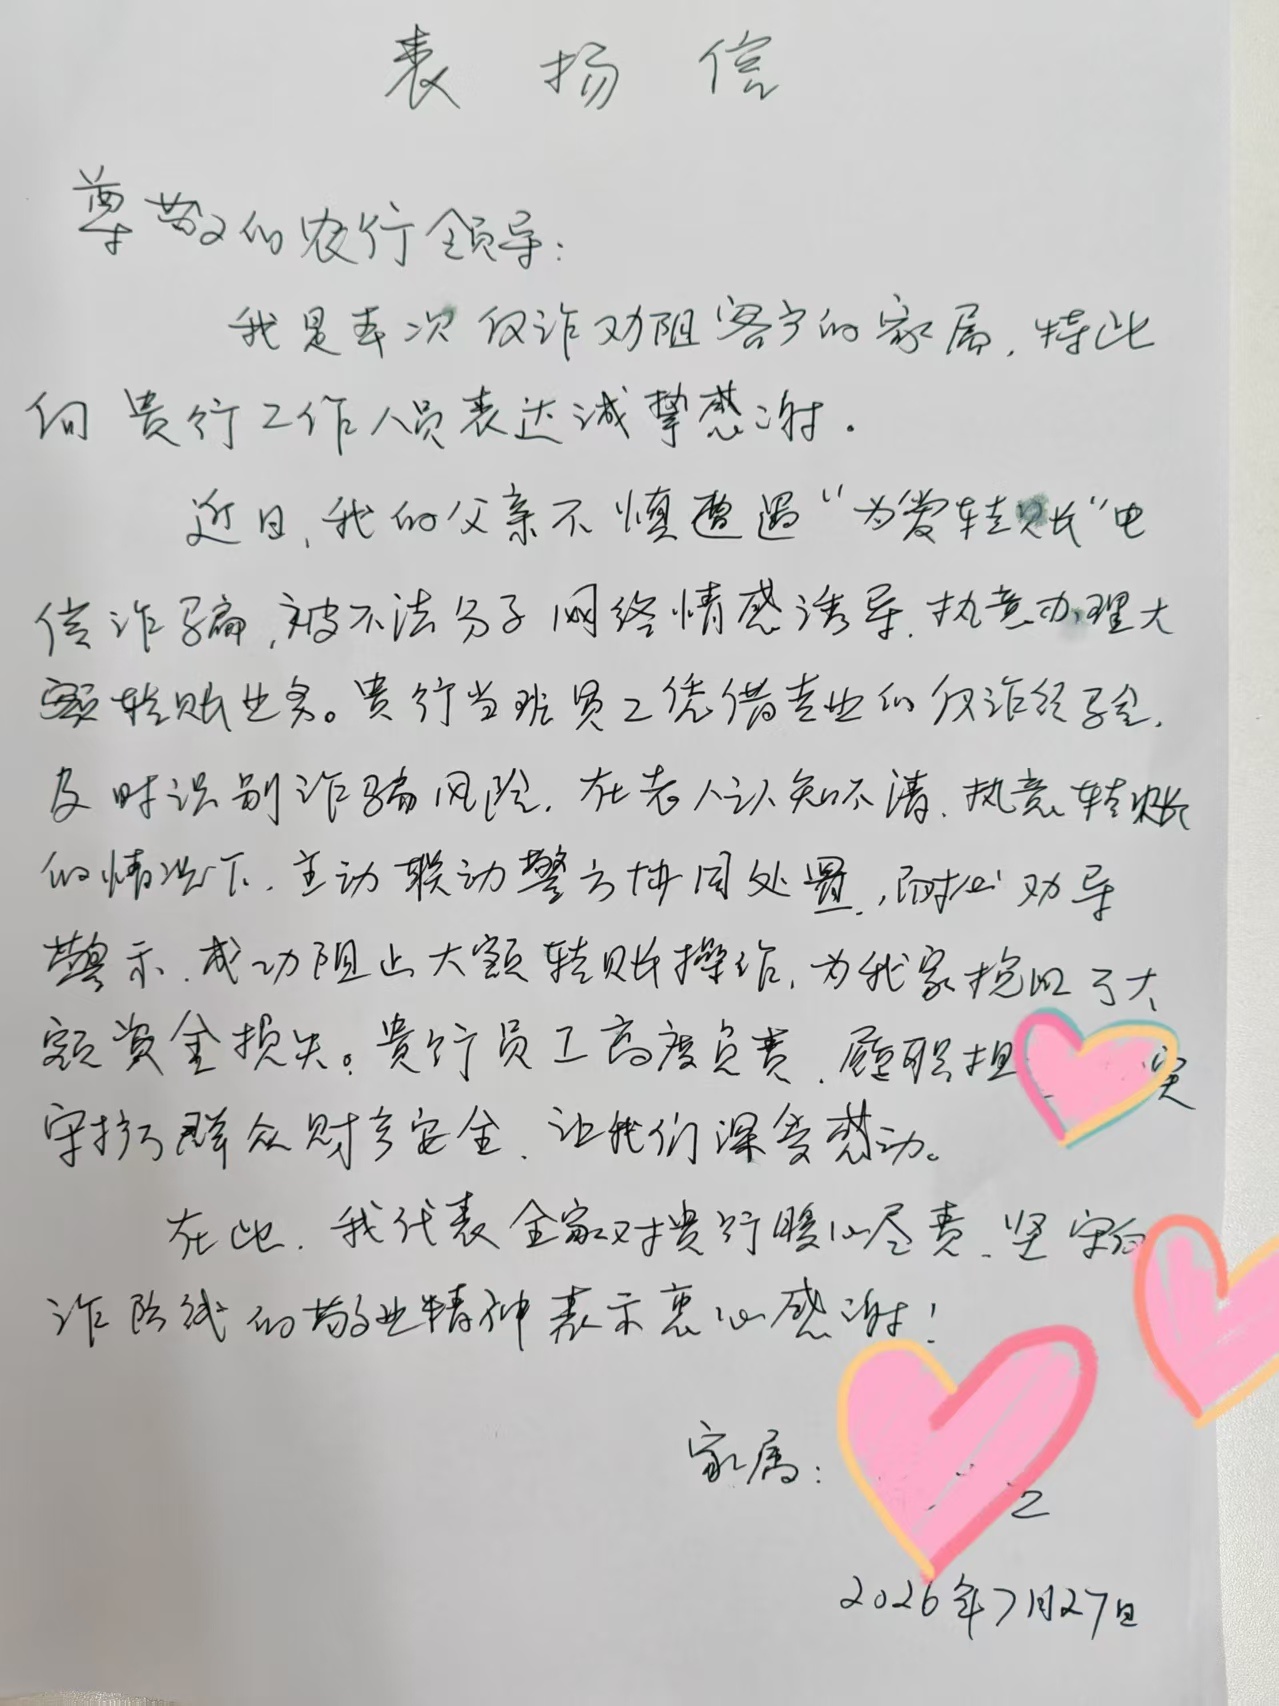 表扬信
尊敬的农行领导：
我是本次反诈劝阻客户的家属，特此
向贵行工作人员表达诚挚感谢。
近日，我的父亲不慎遭遇“为爱转账”电
信诈骗，被不法分子网络情感诱导，执意办理大
额转账业务。贵行当班员工凭借专业的反诈经验，
及时识别诈骗风险，在老人认知不清、执意转账
的情况下，主动联动警方协同处置，耐心劝导
警示，成功阻止大额转账操作，为我家挽回了大
额资金损失。贵行员工高度负责，履职担
守护群众财产安全，让我们深受感动。
在此，我代表全家对贵行暖心尽责、坚守
诈防线的敬业精神表示衷心感谢！
家属：
2026年7月27日